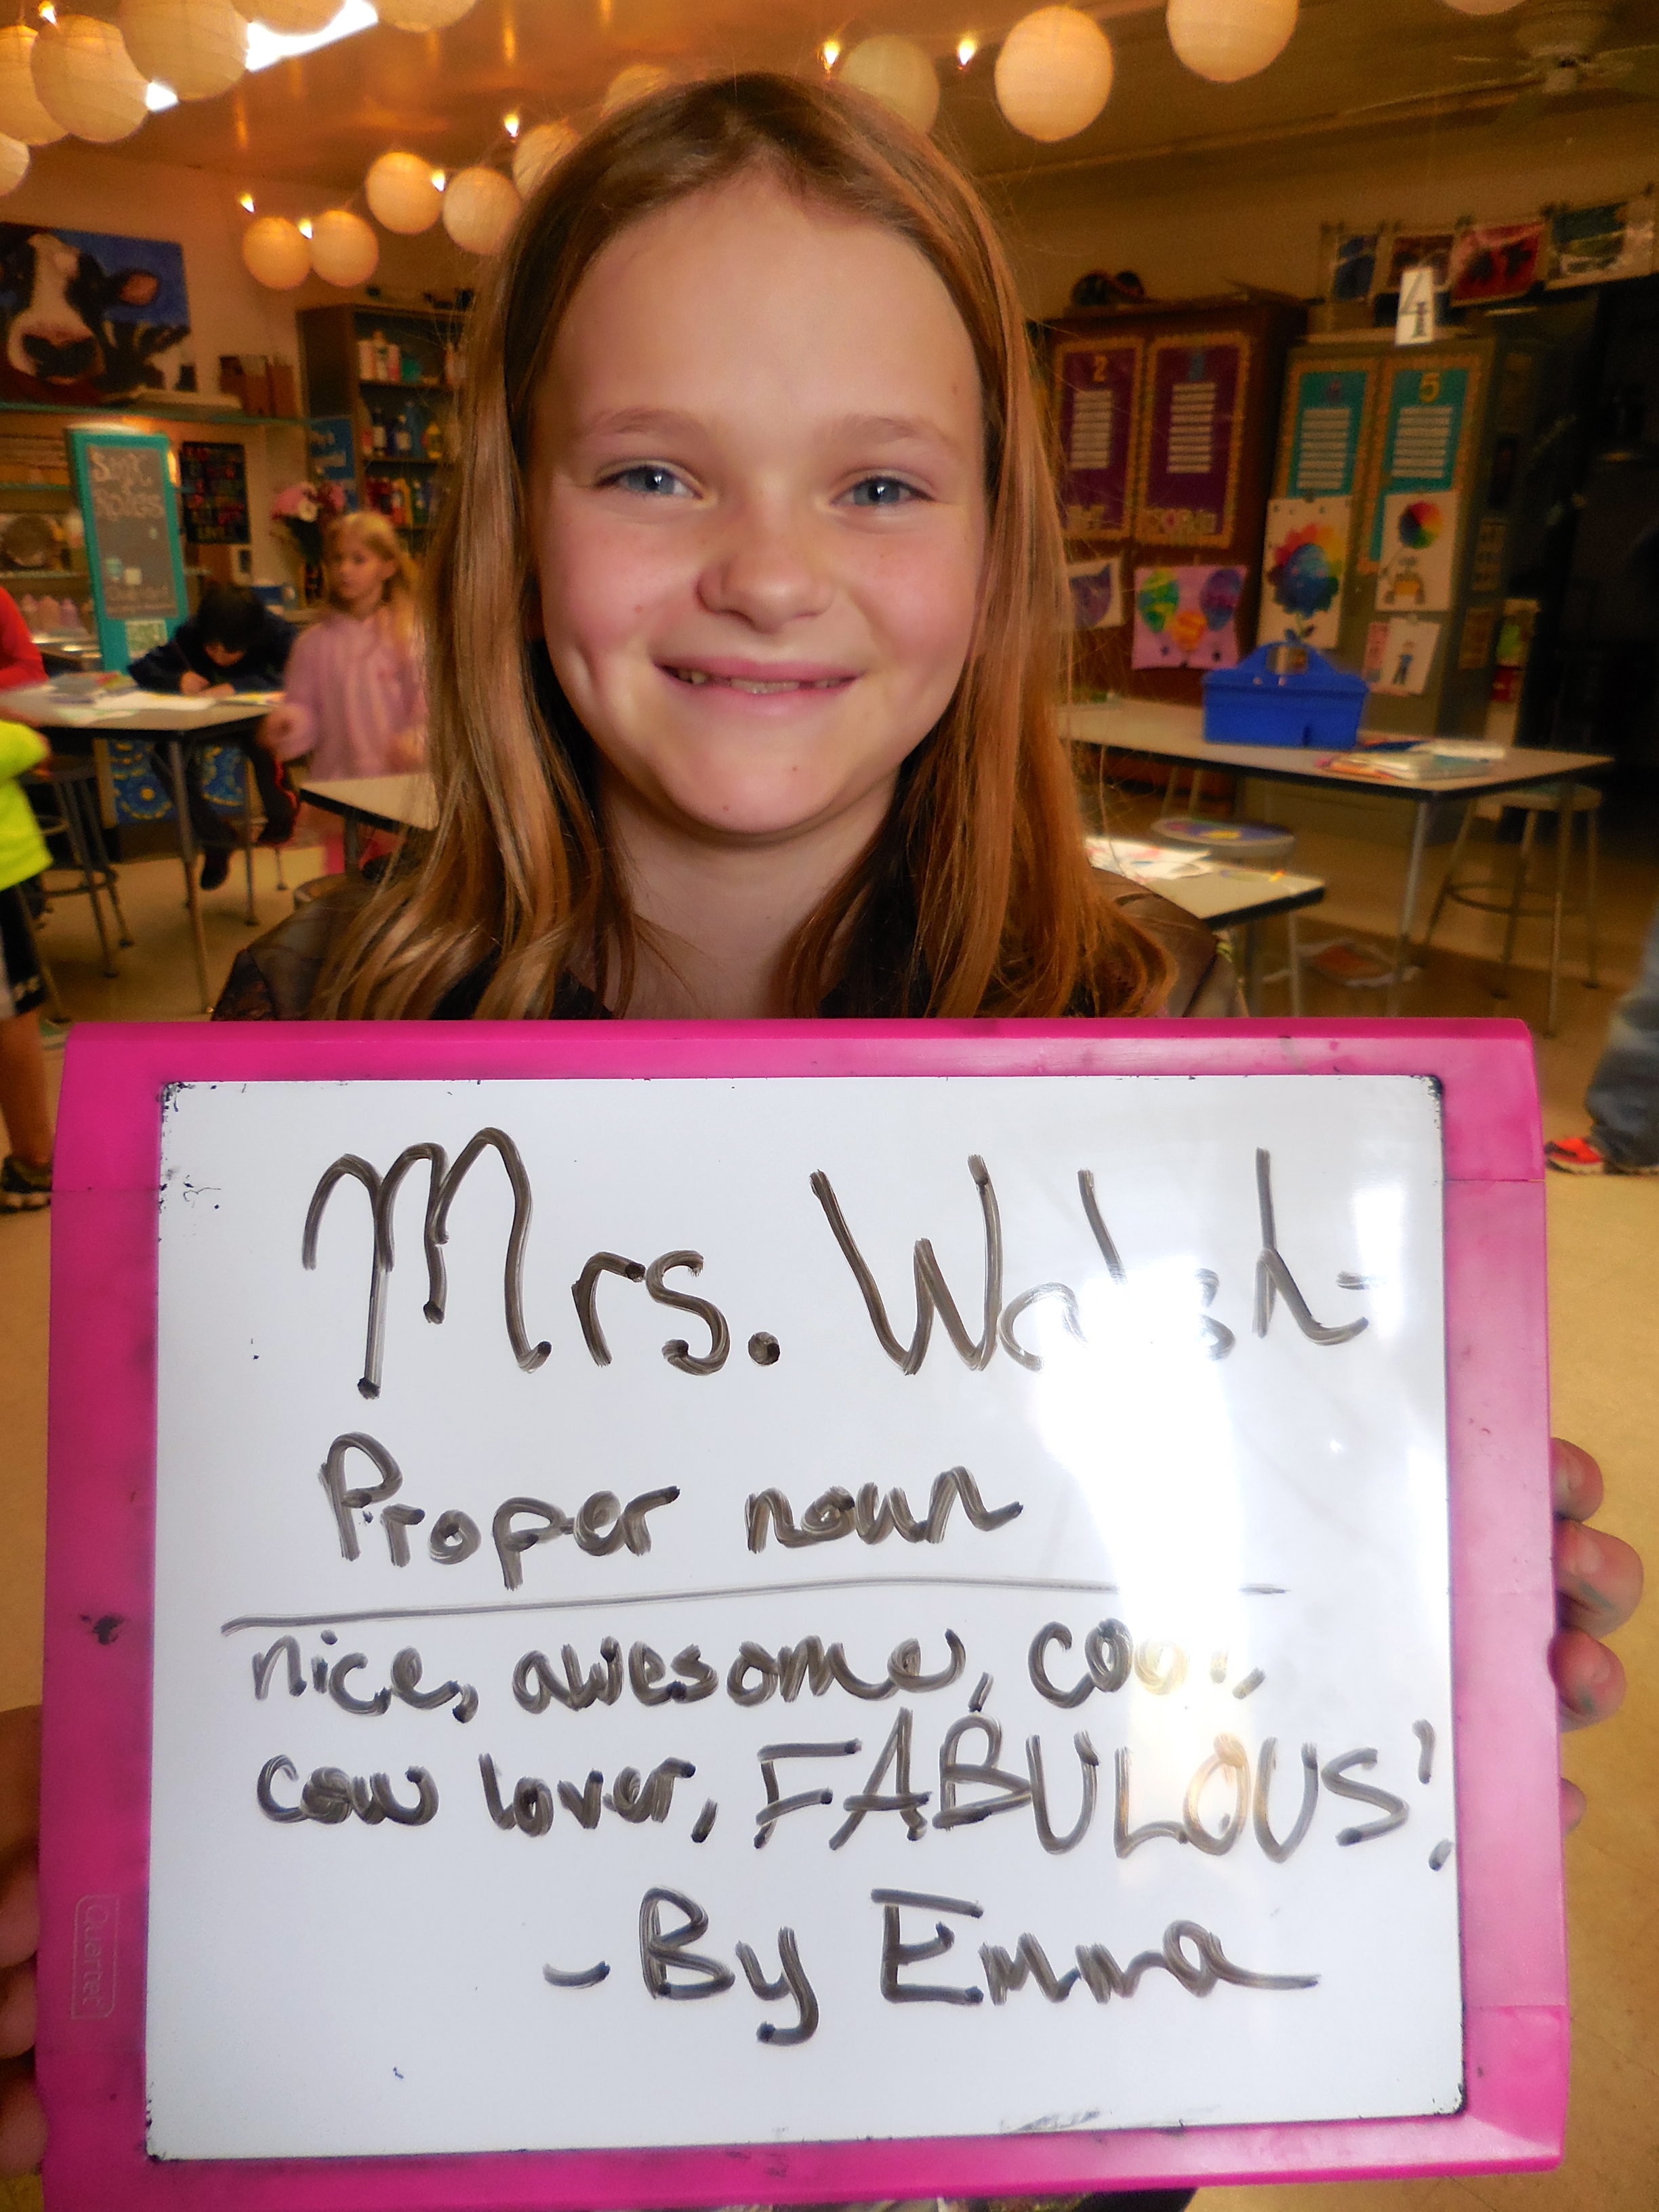 Mrs. Walsh-
Proper noun
nice, awesome, cool,
cow lover, FABULOUS!
-By Emma
Quartet
4
2
5